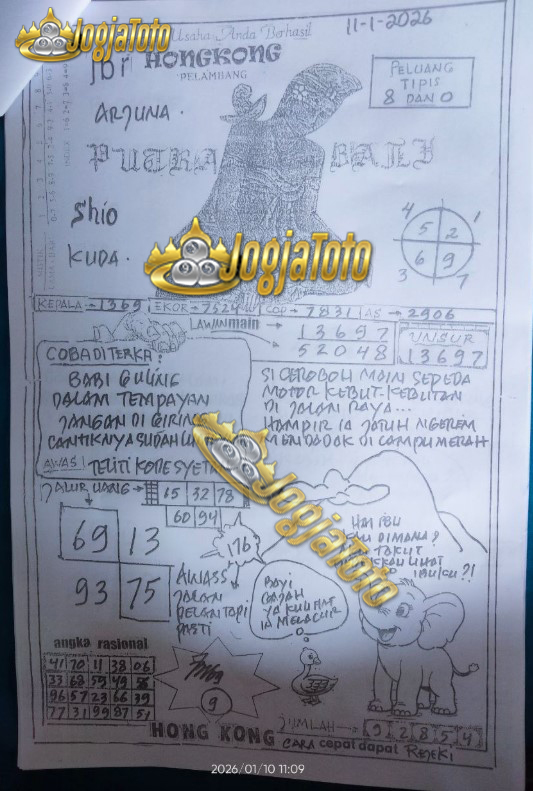 Usaha Anda Berhasil
11-1-2026
JOGJATOTO
jbr HONGKONG
PELAMBANG
PELUANG
TIPIS
8 DAN 0
ARJUNA.
PUTRA BALI
Shio
KUDA.
4 1
5 2
6 9
3 7
JOGJATOTO
KEPALA → 1369 EKOR → 7524 COP → 7831 AS → 2906
LAWAN main →
13697
52048
UNSUR
13697
COBA DITERKA:
BABI GULING
DALAM TEMPAYAN
JANGAN DI GIRING
CANTIKNYA SUDAH
AWAS! TELITI KODE SYETAN
SI CEROBOH MAIN SEPEDA
MOTOR KEBUT KEBUTAN
DI JALAN RAYA...
HAMPIR IA JATUH NGEREM
MENDADOK DI LAMPU MERAH
JALUR UANG → 65 32 78
60 94
JOGJATOTO
69 13
93 75
176
AWASS
JALAN
PELAN TAPI
PASTI
BAYI
GAJAH
YA KULIHAT
IA MELACUR
HAI IBU
KAU DIMANA?
TAKUT
IBUKU?!
angka rasional
41 70 11 38 06
33 68 59 49
96 57 23 66 39
77 31 99 87 51
9
HONG KONG
JUMLAH → 9 2 8 5 4
CARA cepat dapat REJEKI
2026/01/10 11:09